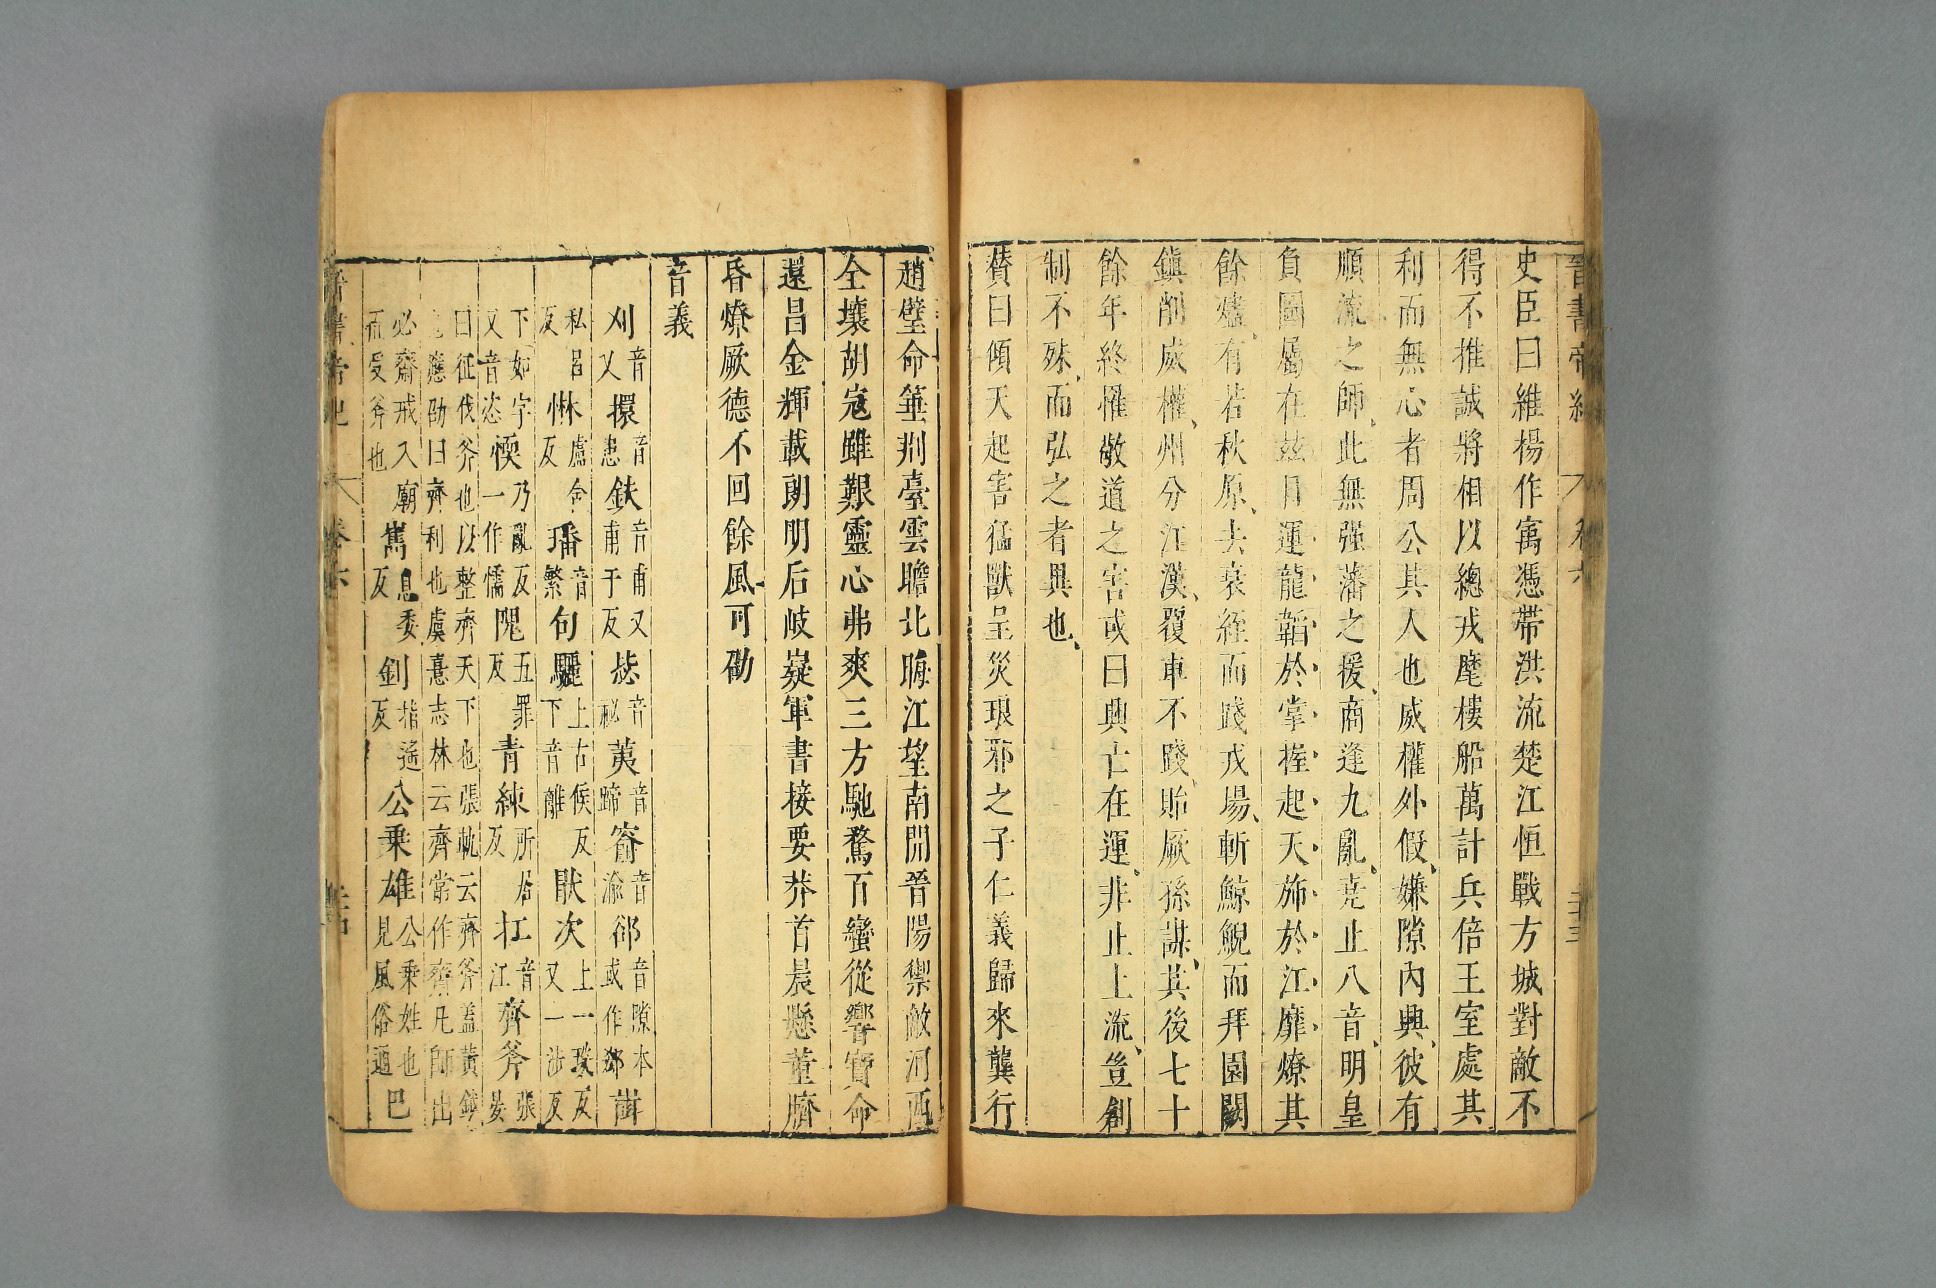 晉書帝紀 卷六 三十三
史臣曰維楊作寓憑帶洪流楚江恒戰方城對敵不
得不推誠將相以總戎麾樓船萬計兵倍王室處其
利而無心者周公其人也威權外假嫌隙內興彼有
順流之師此無强藩之援商逢九亂堯止八音明皇
負圖屬在兹日運龍韜於掌握起天旆於江靡燎其
餘燼有若秋原去衰絰而踐戎場斬鯨鯢而拜園闕
鎮削威權州分江漢覆車不踐貽厥孫謀其後七十
餘年終罹敬道之害或曰興亡在運非止上流豈創
制不殊而弘之者異也
贊曰傾天起害猛獸呈災琅邪之子仁義歸來龔行
趙璧命箠荆臺雲瞻北晦江望南開晉陽禦敵河西
全壤胡寇雖艱靈心弗爽三方馳騖百蠻從響寶命
還昌金輝載朗明后岐嶷軍書接要莽首晨懸董臍
昏燎厥德不回餘風可劭
音義
刈音又擐音患鈇音甫又甫于反毖音祕荑音蹄窬音渝郤音隙本或作郄訷
私咠反惏盧含反璠音繁句驪上古候反下音離猒次上一琰反又一涉反
下如字又音恣愞乃亂反一作懦隗五罪反青練所居反杠音江齊斧張晏
曰征伐斧也以整齊天下也張軌云齊斧蓋黃鉞
也應劭曰齊利也虞憙志林云齊常作齋凡師出
必齋戒入廟而受斧也雋息委反釗指遙反公乗雄公乗姓也見風俗通巴
晉書帝紀 卷六